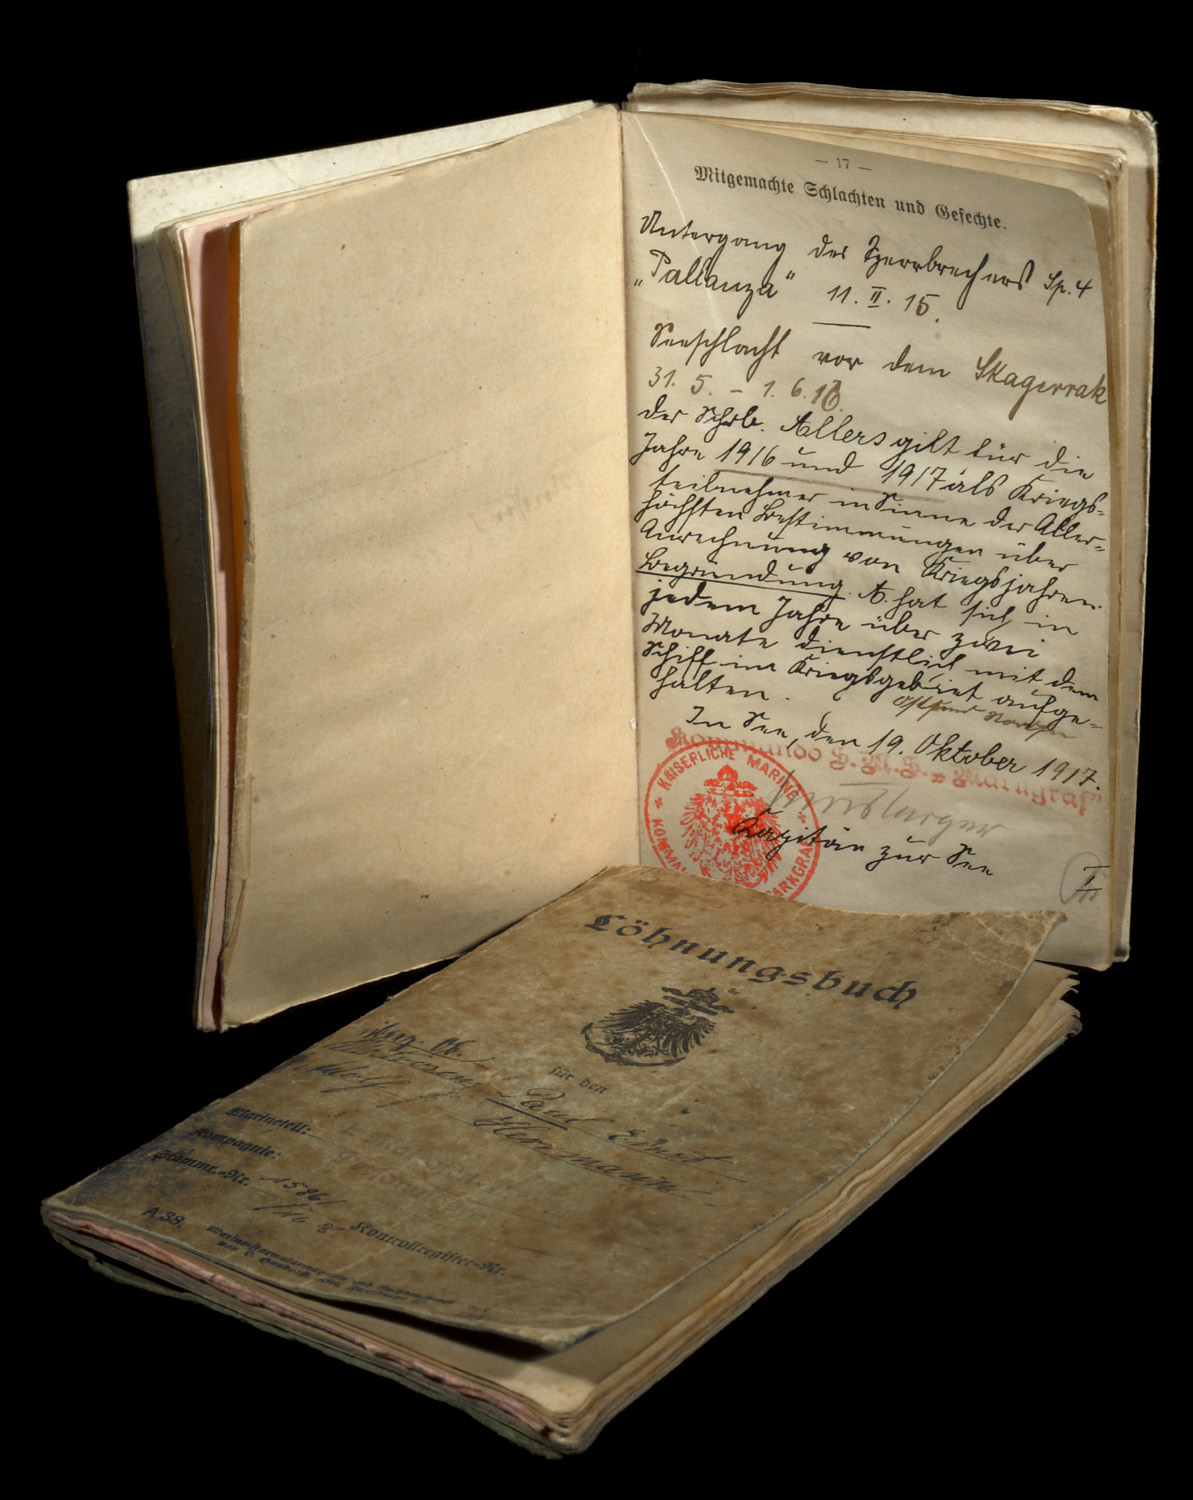 — 17 —
Mitgemachte Schlachten und Gefechte.
Untergang des Sperrbrechers Sp. 4
„Pallanza" 11. II. 15.
Seeschlacht vor dem Skagerrak
31. 5. – 1. 6. 16.
der Allers gilt für die
Jahre 1916 und 1917 als Kriegs-
teilnehmer im Sinne der Aller-
höchsten Bestimmungen über
Anrechnung von Kriegsjahren.
Begründung. A. hat sich in
jedem Jahre über zwei
Monate dienstlich mit dem
Schiff im Kriegsgebiet aufge-
halten.
In See, den 19. Oktober 1917.
Kommando S.M.S. „Markgraf"
KAISERLICHE MARINE
KOMMA MARKGRAF
Kapitän zur See
Löhnungsbuch
für den
Paul Ernst
Adolf Hermann
Marineteil:
Kompagnie:
Stammr.-Nr. 1586
Kontrollregister-Nr.
A 38.